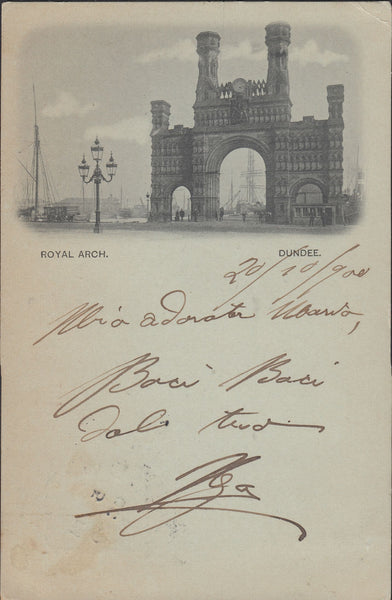 ROYAL ARCH. DUNDEE.
20/10/900
Mia adorata
Baci Baci
dal tuo